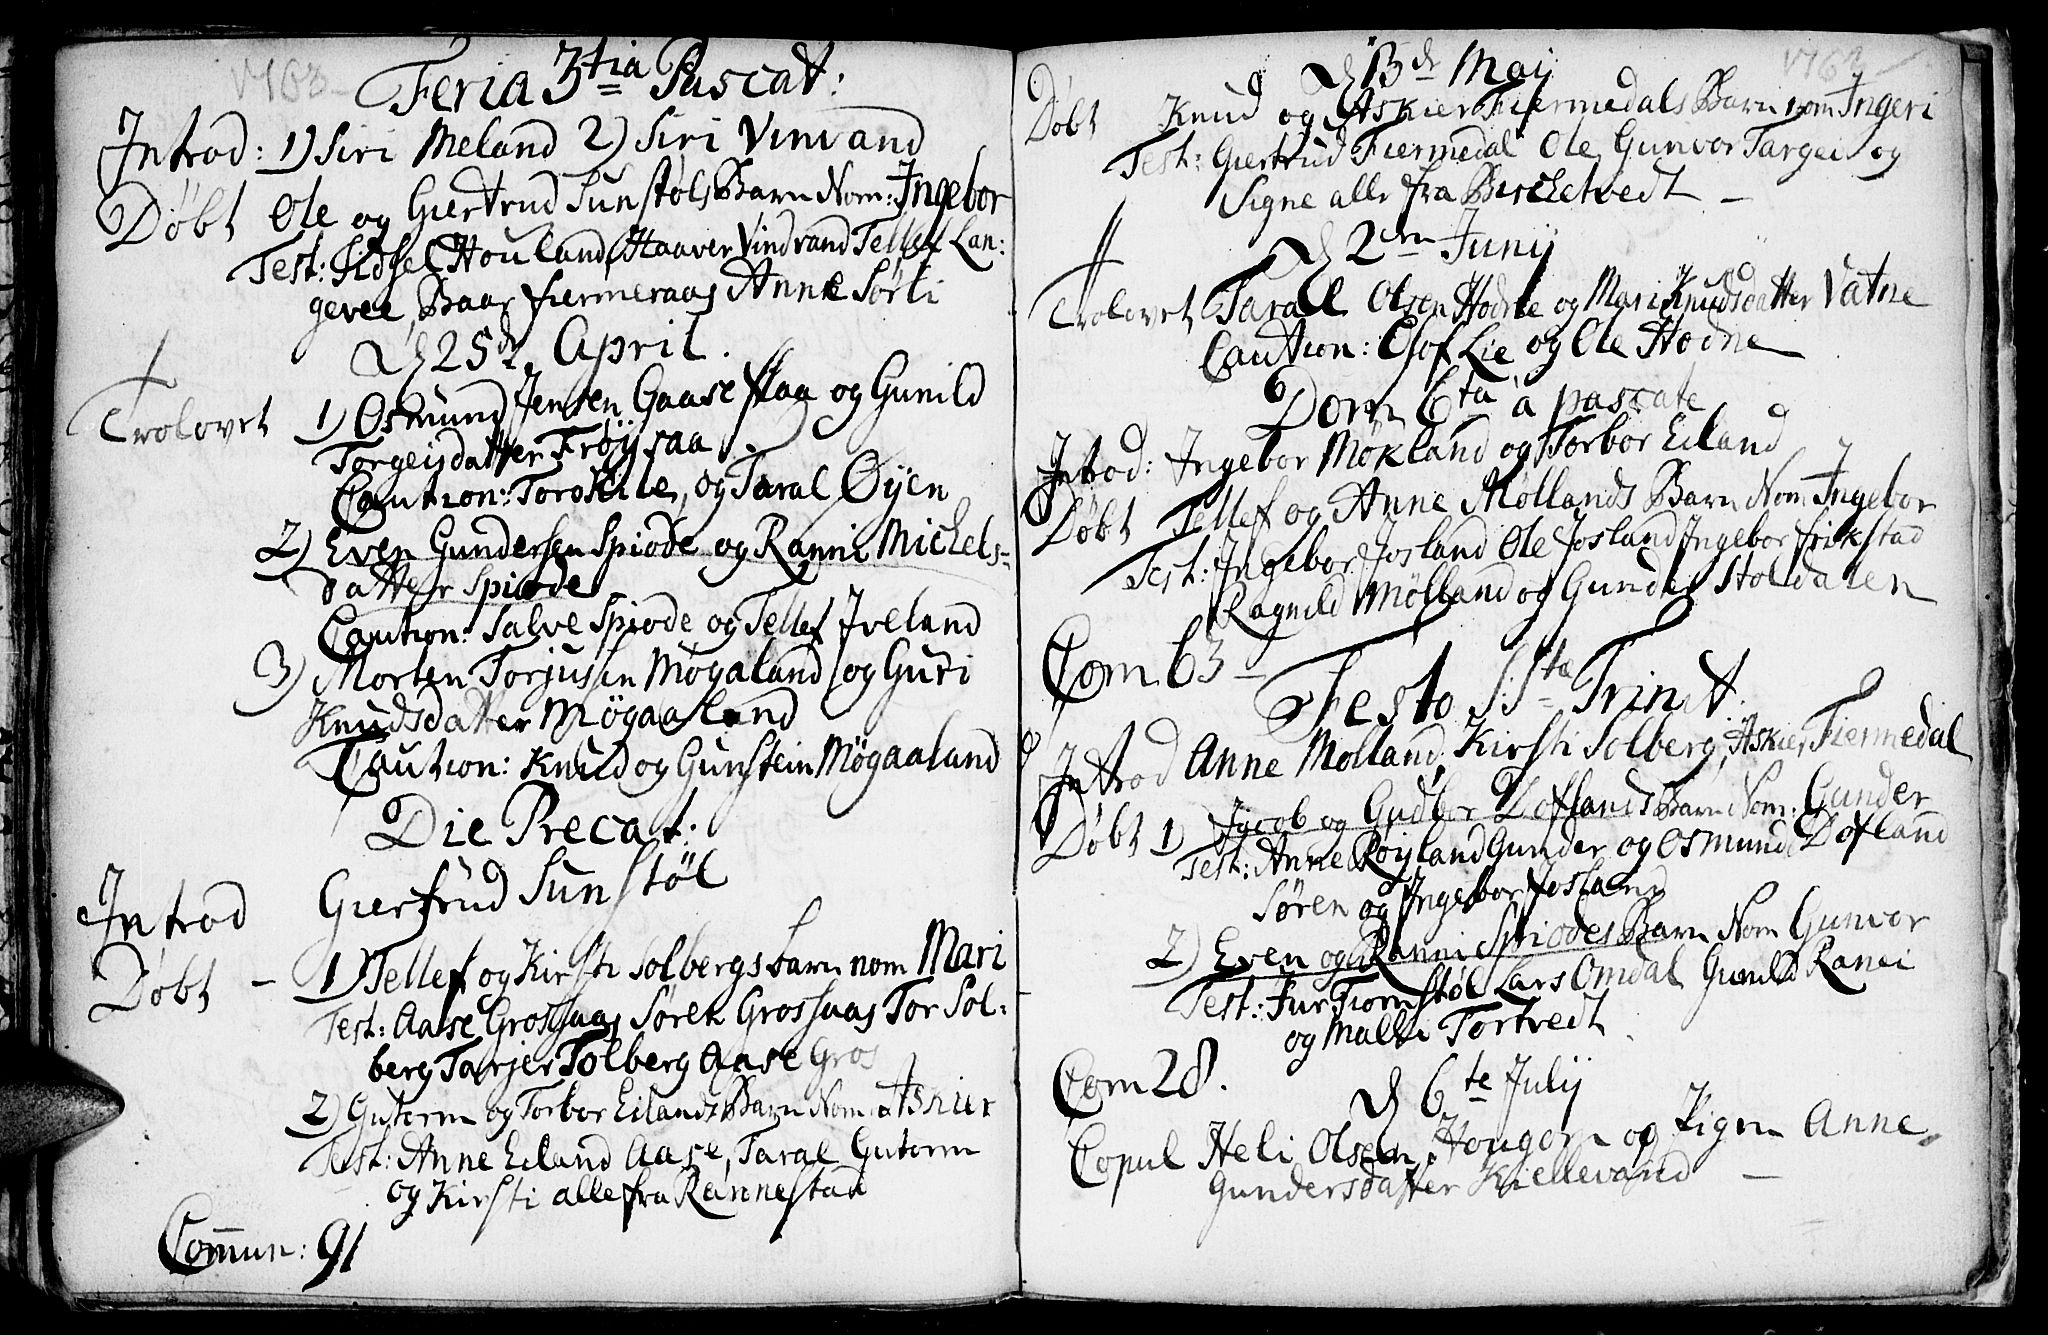 1763
Feria 3tia Pascat:
Introd: 1) Siri Meland 2) Siri Vinrand
Døbt Ole og Giertrud Sunstøls Barn Nom: Ingebor
Test: Sidsel Houland, Haaver Vindrand Tellef Lan:
gevei, Baar fiermeraas Anne Sørli
D 25de April.
Trolovet 1) Osmund Jensen Gaaseflaa og Gunild
Torgeysdatter Frøysaa
Caution: Toroklle, og Taral Øyen
2) Even Gundersen Spiode og Ranni Michels-
datter Spiode
Caution: Salve Spiode og Tellef Iveland
3) Morten Torjussen Møgaland og Guri
Knudsdatter Møgaaland
Caution: Knud og Gunstein Møgaaland
Die Precat:
Introd Giertrud Sunstøl
Døbt - 1) Tellef og Kirsti Solbergs barn nom Mari
Test: Aase Grossaas Søren Grossaas Tor Sol:
berg Tarjer Tolberg Aase Gros
2) Gutorm og Torbor Eilands Barn Nom: Askier
Test: Anne Eiland Aase, Taral Gutorm
og Kirsti alle fra Rannestad
Commun: 91
1763
D 13de Maij
Døbt Knud og Askier Fiermedals Barn nom Ingeri
Test: Giertrud Fiermedal Ole Gunvor Targei og
Signe alle fra Birchetvedt -
D 2den Junij
Trolovet Tarall Olsen Hodne og Mari Knudsdatter Vatne
Caution: Olof Lie og Ole Hodne
Dom 6ta à pascate
Introd: Ingebor Mökland og Torbor Eiland
Døbt Tellef og Anne Møllands Barn Nom Ingebor
Test: Ingebor Josland Ole Josland Ingebor frikstad
Ragnild Mølland og Gunder Stoldalen
Com 63 -
Festo S:Stæ Trinit.
Introd Anne Molland, Kirsti Solberg, Askier Fiermedal
Døbt 1) Jacob og Gudbor Doflands Barn Nom: Gunder
Test: Anne Røyland Gunder og Osmund Dofland
Søren og Ingebor Josland
2) Even og Ranni Spiodes Barn Nom Gunvor
Test: Jur Tiomstøl Lars Omdal Gunild Ranei
og Malli Tortvedt.
Com 28.
D 6te Julij
Copul Heli Olsen Hougom og Sign Anne
Gundersdatter Kiellevand -